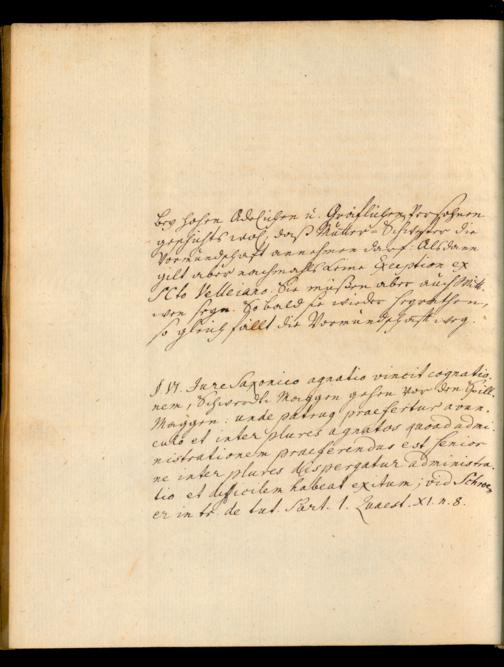 bey hohen Adelichen u. Gräflichen Persohnen
geschichts wohl, daß Mutter-Schwester die
Vormundschaft annehmen darf: Alsdann
gilt aber nachmahls keine Exception ex
SCto Vellejano. Sie müßen aber auch Witt-
wen seyn. So bald sie wieder heyrathen,
so gleich fällt die Vormundschafft weg.
§ 17. Jure Saxonico agnatio vincit cognatio-
nem, Schwerdt Maagen gehen vor den Spill-
Maagen: unde patruus praefertur avun-
culo et inter plures agnatos quoad admi-
nistrationem praeferendus est senior
ne inter plures dispergatur administra-
tio et difficilem habeat exitum; vid Schroe-
er in tr. de tut. Part. 1. Quaest. XI. n. 8.